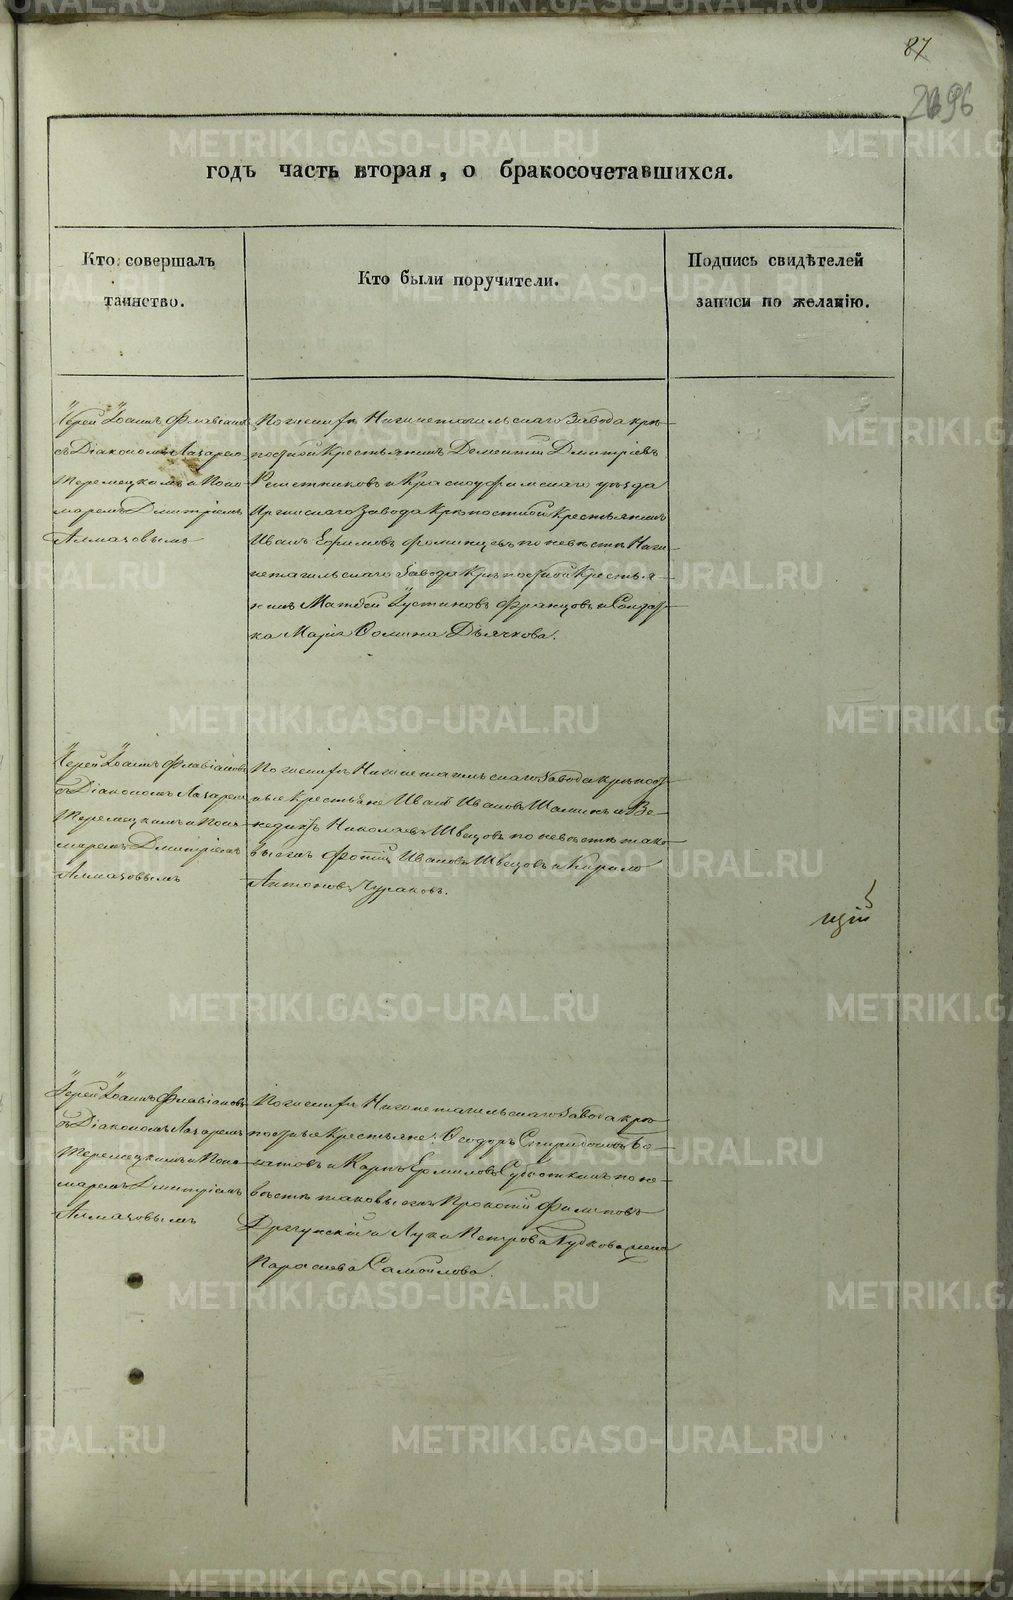 87
96
годъ часть вторая, о бракосочетавшихся.
Кто совершалъ
таинство.
Кто были поручители.
Подпись свидѣтелей
записи по желанію.
Іерей Іоаннъ Флавіановъ
съ Діакономъ Лазаремъ
Теремецкимъ и Поно-
маремъ Димитріемъ
Алмазовымъ
По женихѣ Нижнетагильскаго Завода крѣ-
постной Крестьянинъ Дементій Дмитріевъ
Решетниковъ и Красноуфимскаго уѣзда
Иргинскаго Завода Крѣпостной Крестьянинъ
Иванъ Ефимовъ Фоминцевъ по невѣстѣ Ниж-
нетагильскаго Завода Крѣпостной Крестья-
нинъ Матвей Іустиновъ Францовъ и Солдат-
ка Марія Фомина Дьячкова.
Іерей Іоаннъ Флавіановъ
съ Діакономъ Лазаремъ
Теремецкимъ и Поно-
маремъ Димитріемъ
Алмазовымъ
По женихѣ Нижнетагильскаго Завода крѣпост-
ные Крестьяне Иванъ Ивановъ Шаминъ и Ве-
недиктъ Николаевъ Швецовъ по невѣстѣ тако-
выежъ Фотій Ивановъ Швецовъ и Кирило
Антоновъ Чураковъ.
Іерей Іоаннъ Флавіановъ
съ Діакономъ Лазаремъ
Теремецкимъ и Поно-
маремъ Димитріемъ
Алмазовымъ
По женихѣ Нижнетагильскаго Завода крѣ-
постные Крестьяне: Ѳеодоръ Спиридоновъ Бо-
гатовъ и Карпъ Ермиловъ Субботкинъ по не-
вѣстѣ таковыежъ Прокопій Филиповъ
Драгунскій и Лука Петровъ Гудкова жена
Параскева Самойлова.
цій
METRIKI.GASO-URAL.RU